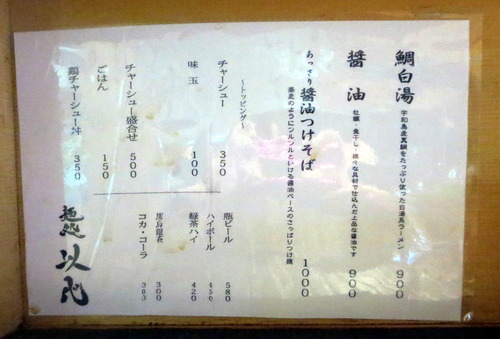 鯛白湯
宇和島産真鯛をたっぷり使った白湯系ラーメン
900
醤油
牡蠣・煮干し・様々な具材で仕込んだ上品な醤油です
900
あっさり 醤油つけそば
蕎麦のようにツルツルといける醤油ベースのさっぱりつけ麺
1000
~トッピング~
チャーシュー 350
味玉 100
チャーシュー盛合せ 500
ごはん 150
鶏チャーシュー丼 350
瓶ビール 580
ハイボール 450
緑茶ハイ 420
黒烏龍茶 300
コカ・コーラ
以心